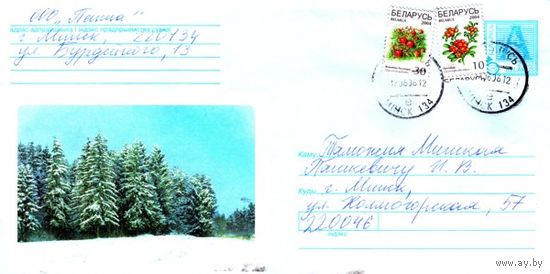 ООО "Пеппа"
адрес адпраўшчыка і індэкс прадпрыемства сувязі
г. Минск, 220134
ул. Бурдейного, 13
БЕЛАРУСЬ
BELARUS 2004
30
БЕЛАРУСЬ
BELARUS 2004
10
А
БЕЛАРУСЬ
МІНСК 134
МІНСК 134
Каму Таможня Минская
Пашкевичу И. В.
Куды г. Минск,
ул. Холмогорская, 57
220046
індэкс
www.ay.by